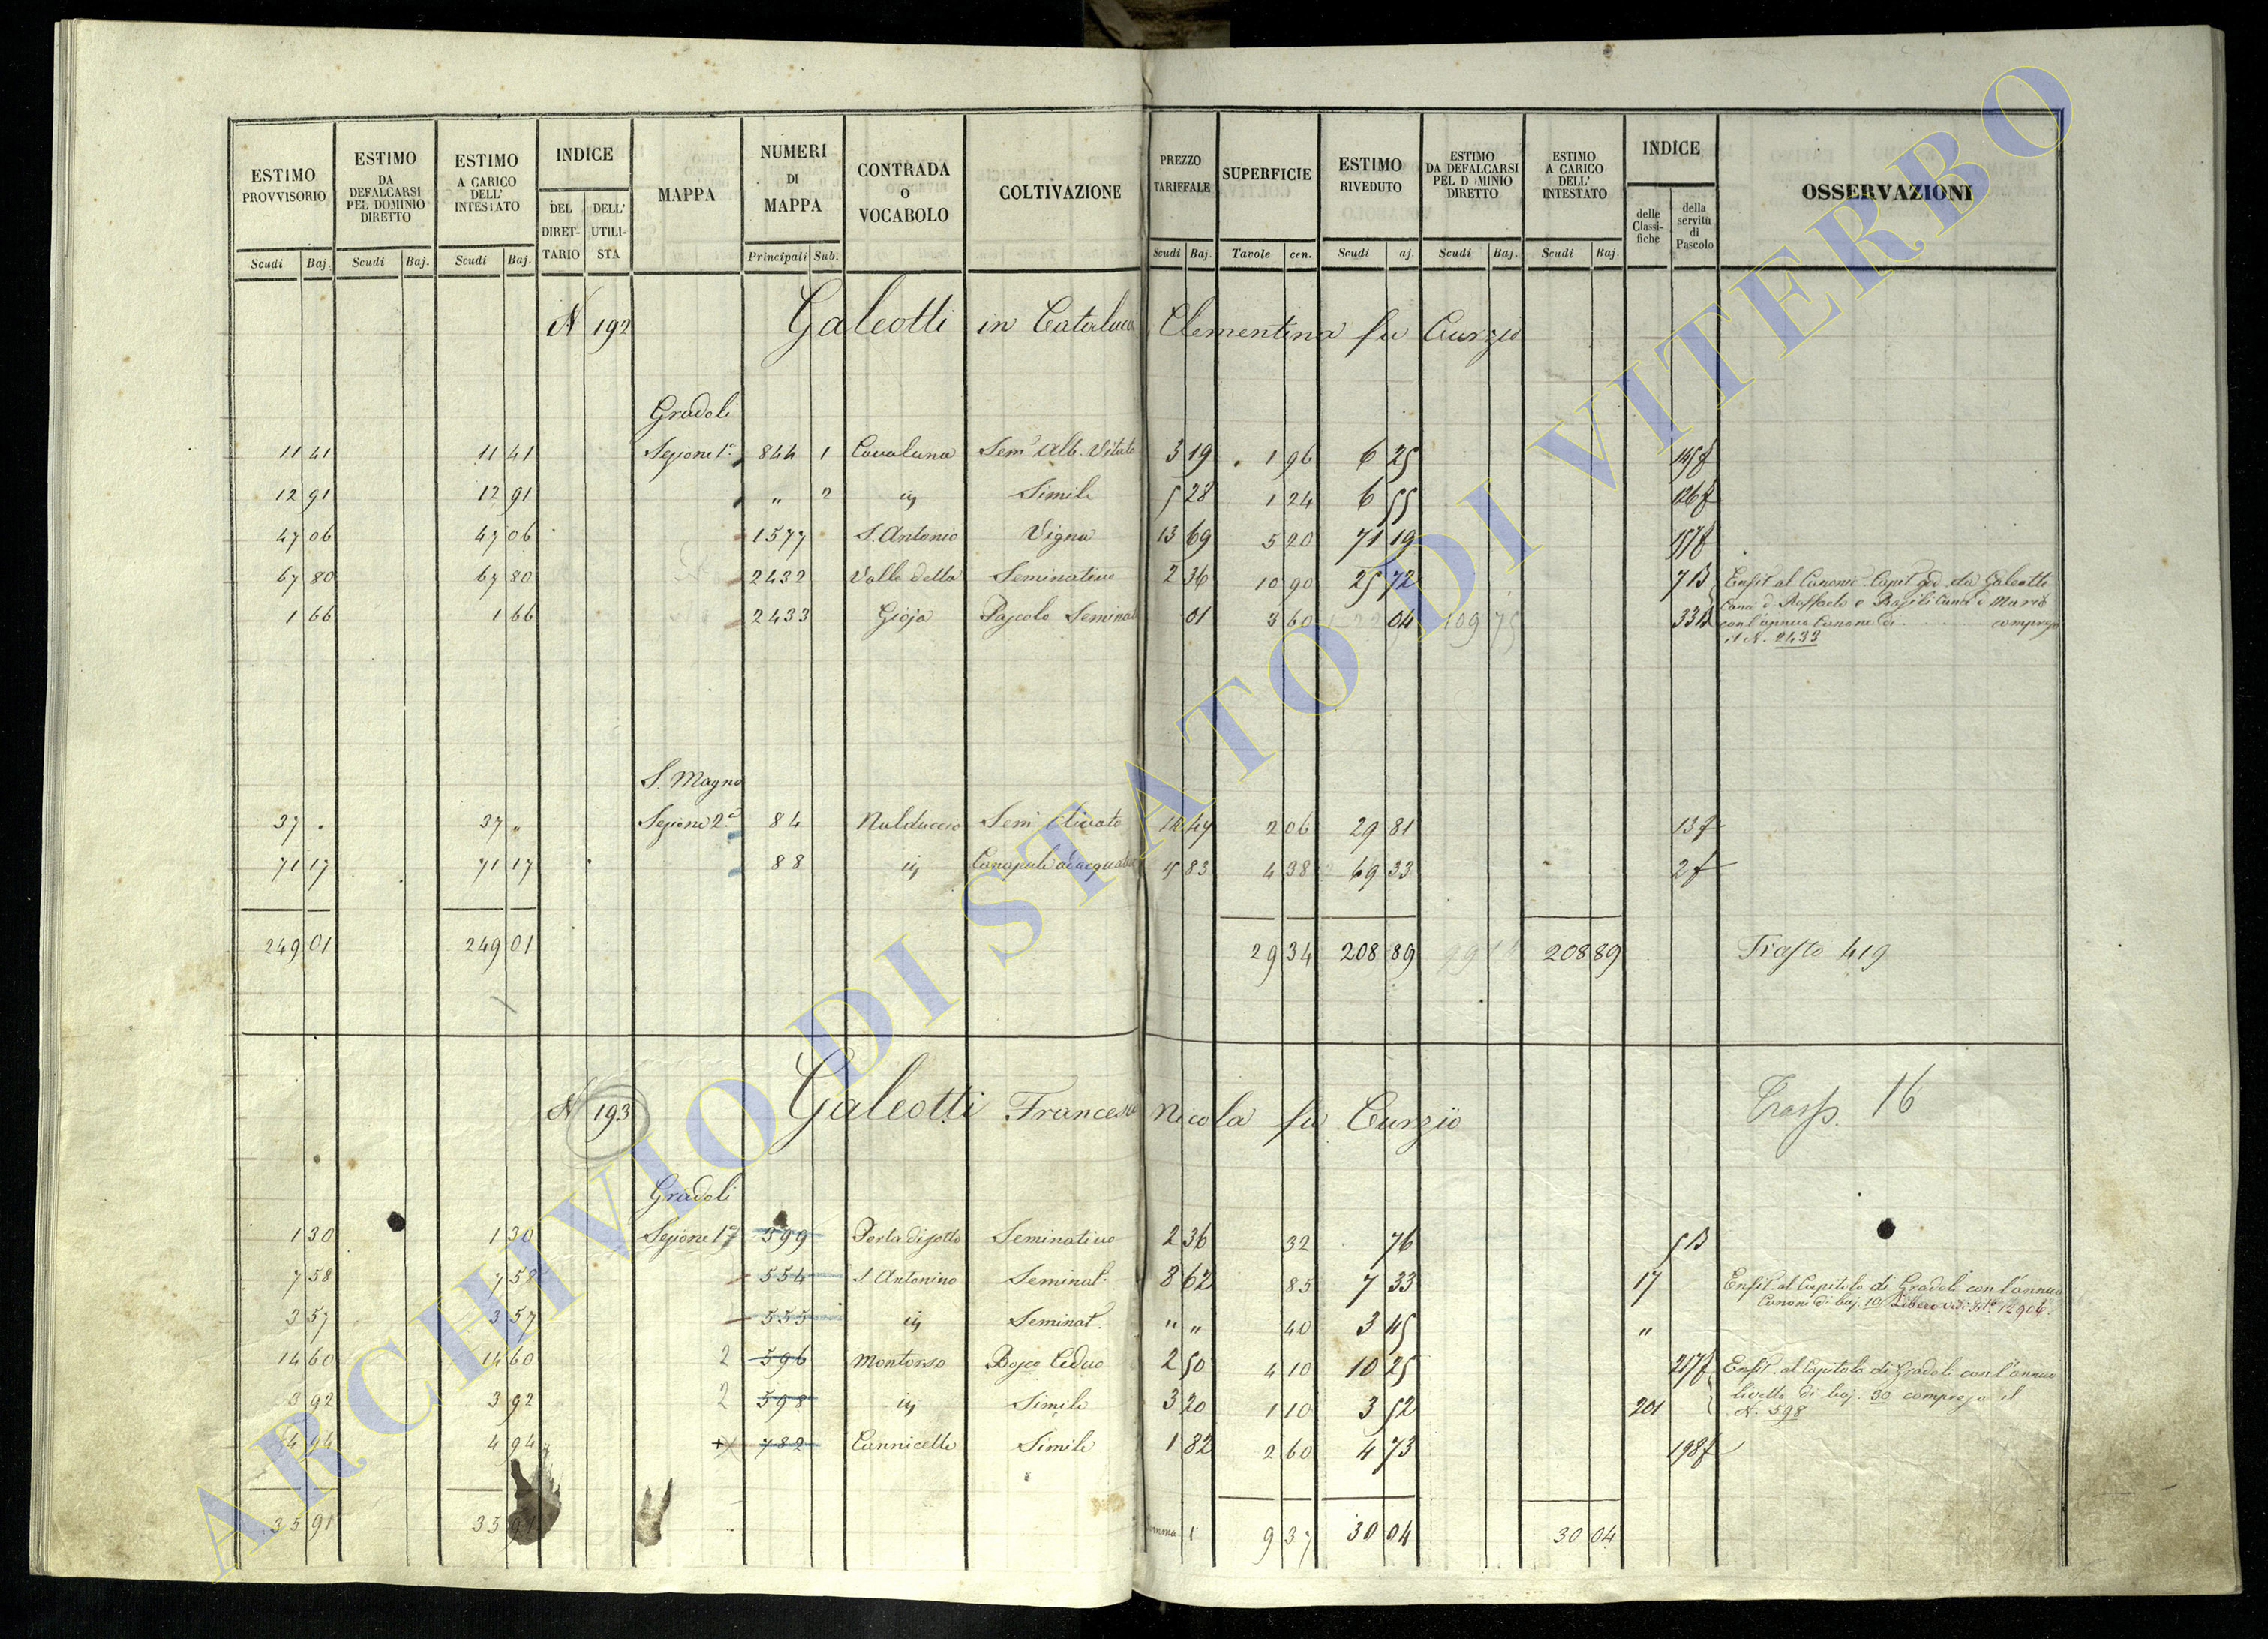 ESTIMO PROVVISORIO | ESTIMO DA DEFALCARSI PEL DOMINIO DIRETTO | ESTIMO A CARICO DELL' INTESTATO | INDICE | MAPPA | NUMERI DI MAPPA | CONTRADA O VOCABOLO | COLTIVAZIONE | PREZZO TARIFFALE | SUPERFICIE | ESTIMO RIVEDUTO | ESTIMO DA DEFALCARSI PEL D MINIO DIRETTO | ESTIMO A CARICO DELL' INTESTATO | INDICE | OSSERVAZIONI
DEL DIRETTARIO | DELL' UTILISTA | delle Classifiche | della servitù di Pascolo
Scudi | Baj. | Scudi | Baj. | Scudi | Baj. | Principali | Sub. | Scudi | Baj. | Tavole | cen. | Scudi | aj. | Scudi | Baj. | Scudi | Baj.
N 192 Galeotti in Catalucci Clementina fu Curzio
Gradoli
11 41 | 11 41 | Sezione 1ª | 844 | 1 | Cavaluna | Sem.º Alb. Vitato | 3 19 | 1 96 | 6 25 | 145 f
12 91 | 12 91 | " | 2 | id | Simile | 5 28 | 1 24 | 6 55 | 126 f
47 06 | 47 06 | 1577 | S. Antonio | Vigna | 13 69 | 5 20 | 71 19 | 157 f
67 80 | 67 80 | 2432 | Valle della | Seminativo | 2 36 | 10 90 | 25 72 | 7 B | Enfit. al Canonic. Capit. god. da Galeotti
Canco D. Raffaele e Basili Canco D. Mario
1 66 | 1 66 | 2433 | Gioja | Pascolo Seminat | 01 | 3 60 | 04 | 109 75 | 33 B | con l'annuo Canone di compreso
il N. 2433
S. Magno
37 . | 37 " | Sezione 2ª | 84 | Nalduccio | Sem. Olivato | 14 47 | 2 06 | 29 81 | 13 f
71 17 | 71 17 | 88 | id | Canapule adacquato | 15 83 | 4 38 | 69 33 | 2 f
249 01 | 249 01 | 29 34 | 208 89 | 208 89 | Trasto 419
N 193 Galeotti Francesco Nicola fu Curzio | Trasp. 16
Gradoli
1 30 | 1 30 | Sezione 1ª | 599 | Porta di sotto | Seminativo | 2 36 | 32 | 76 | 5 B
7 58 | 7 58 | 554 | S. Antonino | Seminat. | 8 62 | 85 | 7 33 | 17 | Enfit. al Capitolo di Gradoli con l'annuo
Canone di baj. 10
3 57 | 3 57 | 555 | id | Seminat. | " " | 40 | 3 45 | "
14 60 | 14 60 | 2 | 596 | Montorso | Bosco Ceduo | 2 50 | 4 10 | 10 25 | 217 f | Enfit. al Capitolo di Gradoli con l'annuo
3 92 | 3 92 | 2 | 598 | id | Simile | 3 20 | 1 10 | 3 52 | 201 | livello di baj. 30 compreso il
N. 598
4 94 | 4 94 | + | 782 | Cannicelle | Simile | 1 82 | 2 60 | 4 73 | 198 f
35 91 | 35 91 | Somma | 9 37 | 30 04 | 30 04
ARCHIVIO DI STATO DI VITERBO